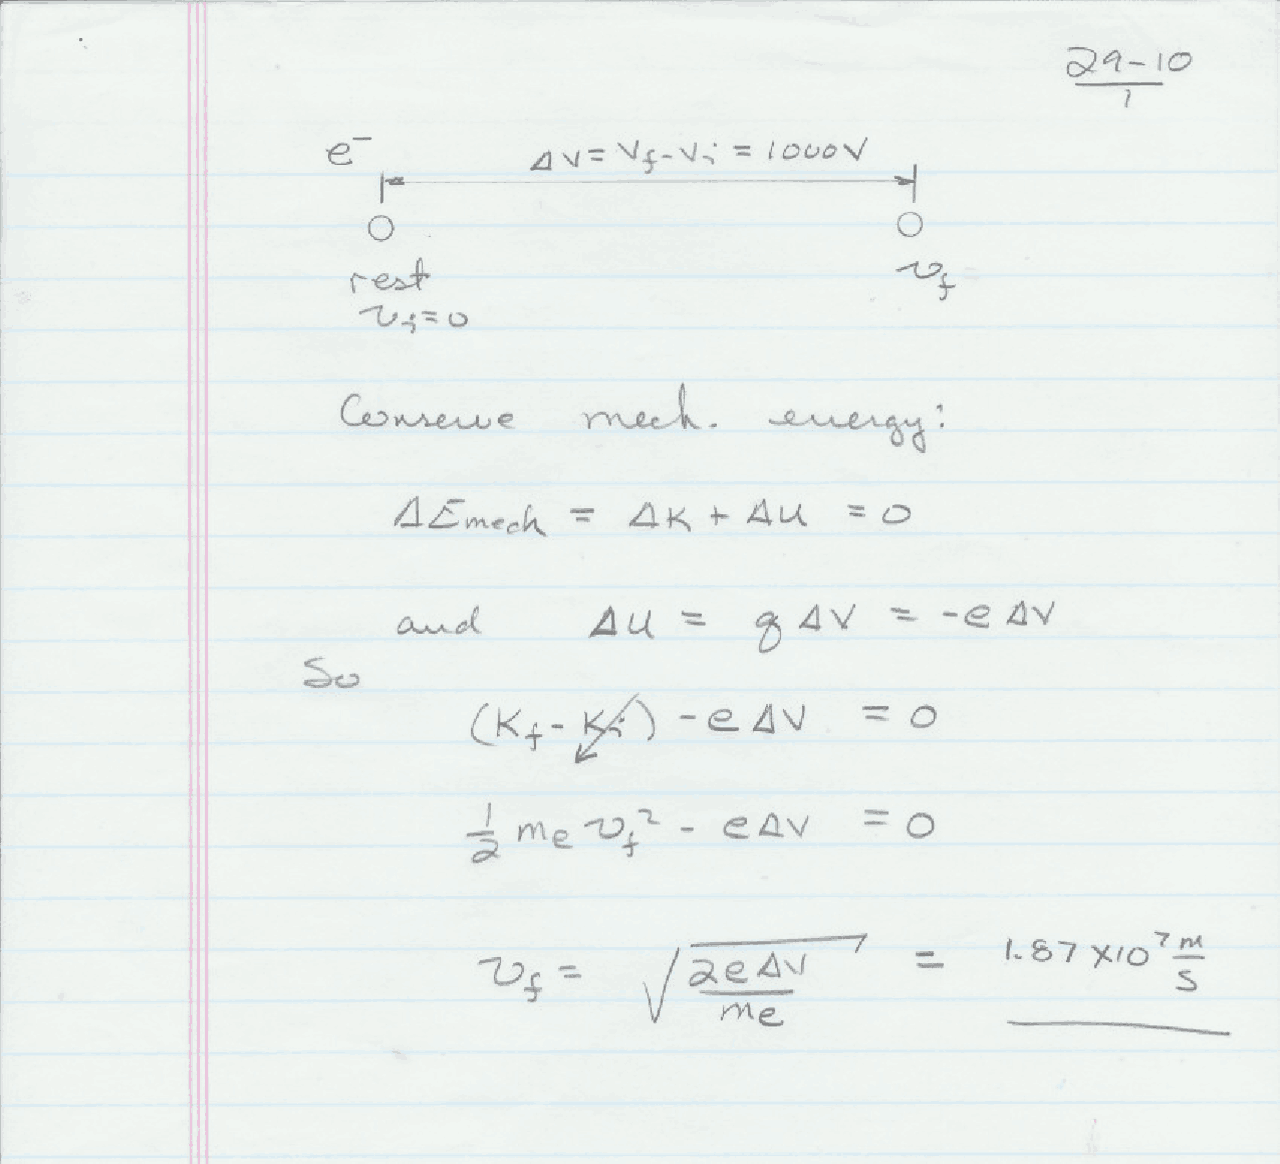 29-10
1
e⁻
ΔV = V_f - V_i = 1000V
rest
v_i = 0
v_f
Conserve mech. energy:
ΔE_mech = ΔK + ΔU = 0
and ΔU = qΔV = -eΔV
So
(K_f - K_i) - eΔV = 0
1/2 m_e v_f² - eΔV = 0
v_f = √(2eΔV/m_e) = 1.87 × 10⁷ m/s